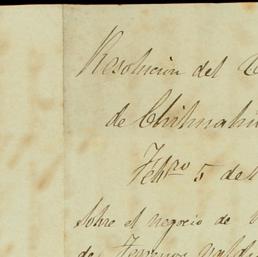 Resolucion del
de Chihuahu
Febro 5 de
Sobre el negocio de
de Terrenos valdi